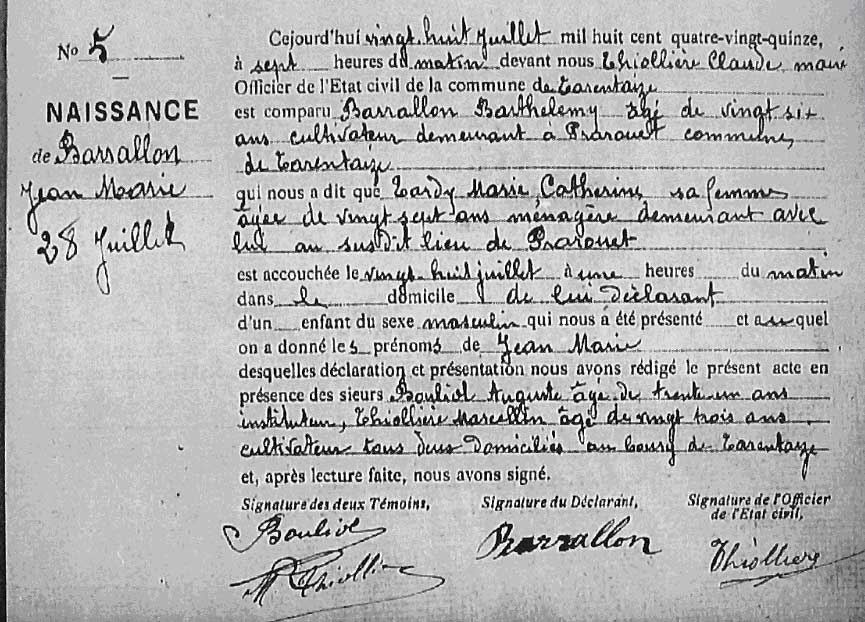 No 5
NAISSANCE
de Barrallon
Jean Marie
28 Juillet
Cejourd'hui vingt huit Juillet mil huit cent quatre-vingt-quinze,
à sept heures du matin devant nous Thiollière Claude maire
Officier de l'Etat civil de la commune de Tarentaize
est comparu Barrallon Barthélemy âgé de vingt six
ans cultivateur demeurant à Prarouet commune
de Tarentaize
qui nous a dit que Tardy Marie, Catherine, sa femme
âgée de vingt sept ans ménagère demeurant avec
lui au susdit lieu de Prarouet
est accouchée le vingt huit juillet à une heures du matin
dans le domicile de lui déclarant
d'un enfant du sexe masculin qui nous a été présenté et auquel
on a donné les prénoms de Jean Marie
desquelles déclaration et présentation nous avons rédigé le présent acte en
présence des sieurs Bouliol Auguste âgé de trente un ans
instituteur, Thiollière Marcellin âgé de vingt trois ans
cultivateur tous deux domiciliés au bourg de Tarentaize
et, après lecture faite, nous avons signé.
Signature des deux Témoins, Signature du Déclarant, Signature de l'Officier
de l'Etat civil,
Bouliol Barrallon Thiolliere
M Thiollière